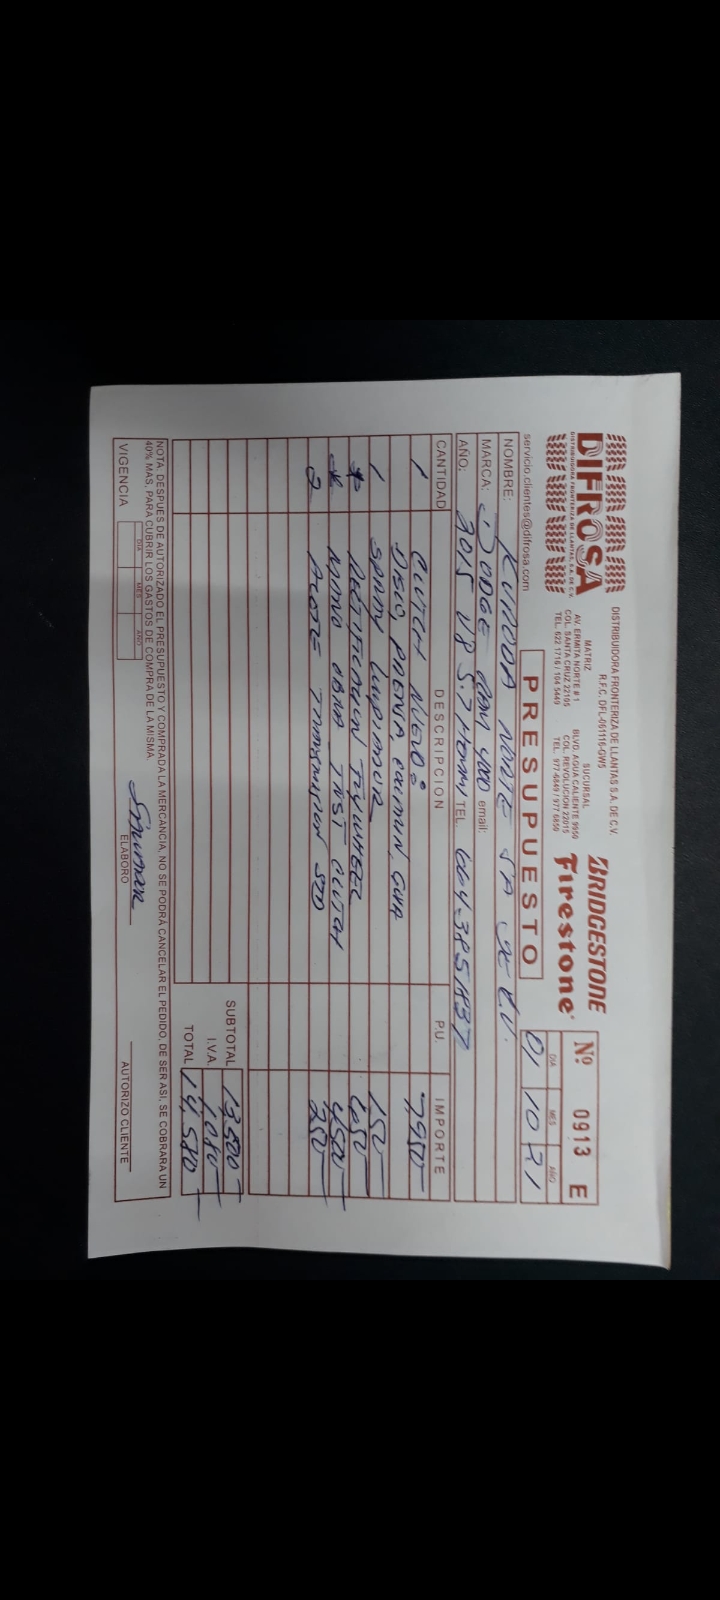 DIFROSA
DISTRIBUIDORA FRONTERIZA DE LLANTAS, S.A. DE C.V.
servicio.clientes@difrosa.com
DISTRIBUIDORA FRONTERIZA DE LLANTAS S.A. DE C.V.
R.F.C. DFL-061116-GW5
MATRIZ
AV. ERMITA NORTE # 1
COL. SANTA CRUZ 22105
TEL. 622 1716 / 104 5449
SUCURSAL
BLVD. AGUA CALIENTE 9950
COL. REVOLUCION 22015
TEL. 977-6849 / 977 6850
BRIDGESTONE
Firestone
PRESUPUESTO
Nº 0913 E
DIA MES AÑO
01 10 21
NOMBRE: KURODA NORTE SA DE C.V.
MARCA: DODGE RAM 4000 email:
AÑO: 2015 V8 5.7 HEMI TEL. 664-385-1837
CANTIDAD DESCRIPCION P.U. IMPORTE
1 CLUTCH NUEVO: 7,950
DISCO, PRENSA, COLLARIN, GUIA
1 SPRAY LIMPIADOR 150
* RECTIFICACION FLYWHEEL 650
* MANO OBRA INST CLUTCH 4500
2 ACEITE TRANSMISION STD 250
SUBTOTAL 13,500
I.V.A. 1,080
TOTAL 14,580
NOTA: DESPUES DE AUTORIZADO EL PRESUPUESTO Y COMPRADA LA MERCANCIA, NO SE PODRÁ CANCELAR EL PEDIDO, DE SER ASI, SE COBRARA UN
40% MAS, PARA CUBRIR LOS GASTOS DE COMPRA DE LA MISMA.
VIGENCIA DIA MES AÑO
ELABORO
AUTORIZO CLIENTE